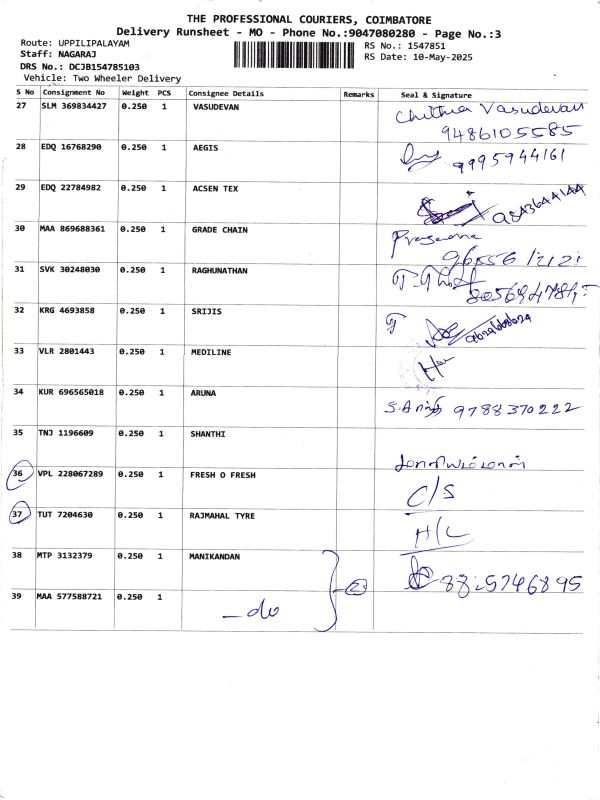 THE PROFESSIONAL COURIERS, COIMBATORE
Delivery Runsheet - MO - Phone No.:9047080280 - Page No.:3
Route: UPPILIPALAYAM
RS No.: 1547851
Staff: NAGARAJ
RS Date: 10-May-2025
DRS No.: DCJB154785103
Vehicle: Two Wheeler Delivery
S No Consignment No Weight PCS Consignee Details Remarks Seal & Signature
27 SLM 369834427 0.250 1 VASUDEVAN Chithra Vasudevan
9486105585
28 EDQ 16768290 0.250 1 AEGIS 9995944161
29 EDQ 22784982 0.250 1 ACSEN TEX
30 MAA 869688361 0.250 1 GRADE CHAIN
31 SVK 30248030 0.250 1 RAGHUNATHAN
32 KRG 4693858 0.250 1 SRIJIS
33 VLR 2801443 0.250 1 MEDILINE
34 KUR 696565018 0.250 1 ARUNA 9788370222
35 TNJ 1196609 0.250 1 SHANTHI
36 VPL 228067289 0.250 1 FRESH O FRESH C/S
37 TUT 7204630 0.250 1 RAJMAHAL TYRE H/L
38 MTP 3132379 0.250 1 MANIKANDAN
39 MAA 577588721 0.250 1 -do 2